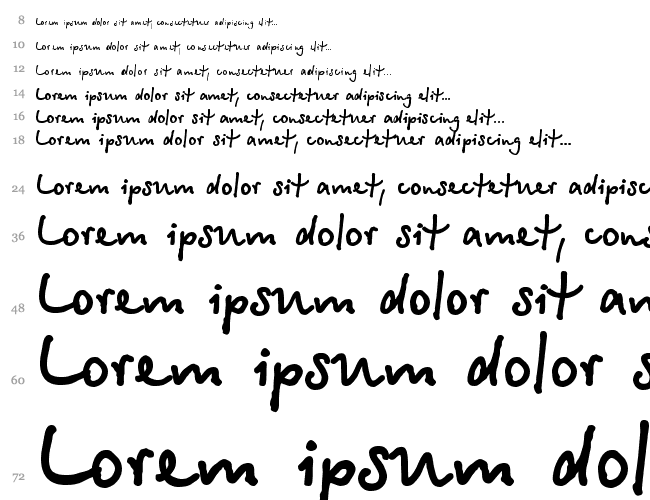 8 Lorem ipsum dolor sit amet, consectetuer adipiscing elit...
10 Lorem ipsum dolor sit amet, consectetuer adipiscing elit...
12 Lorem ipsum dolor sit amet, consectetuer adipiscing elit...
14 Lorem ipsum dolor sit amet, consectetuer adipiscing elit...
16 Lorem ipsum dolor sit amet, consectetuer adipiscing elit...
18 Lorem ipsum dolor sit amet, consectetuer adipiscing elit...
24 Lorem ipsum dolor sit amet, consectetuer adipisc
36 Lorem ipsum dolor sit amet, cons
48 Lorem ipsum dolor sit am
60 Lorem ipsum dolor s
72 Lorem ipsum dol